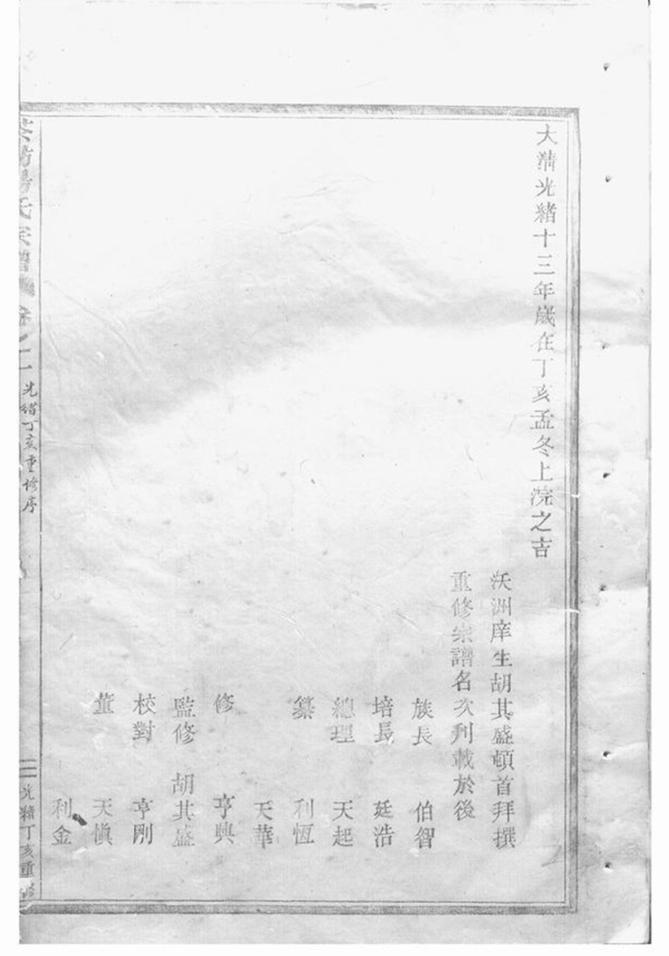 大清光緒十三年歲在丁亥孟冬上浣之吉
沃洲庠生胡其盛頓首拜撰
重修宗譜名次列載於後
族長 伯智
培長 廷浩
總理 天起
纂 利恆
天華
修 亨興
監修 胡其盛
校對 亨剛
董 天慎
利金
氏宗譜 卷之二 光緒丁亥重修序
二 光緒丁亥重修